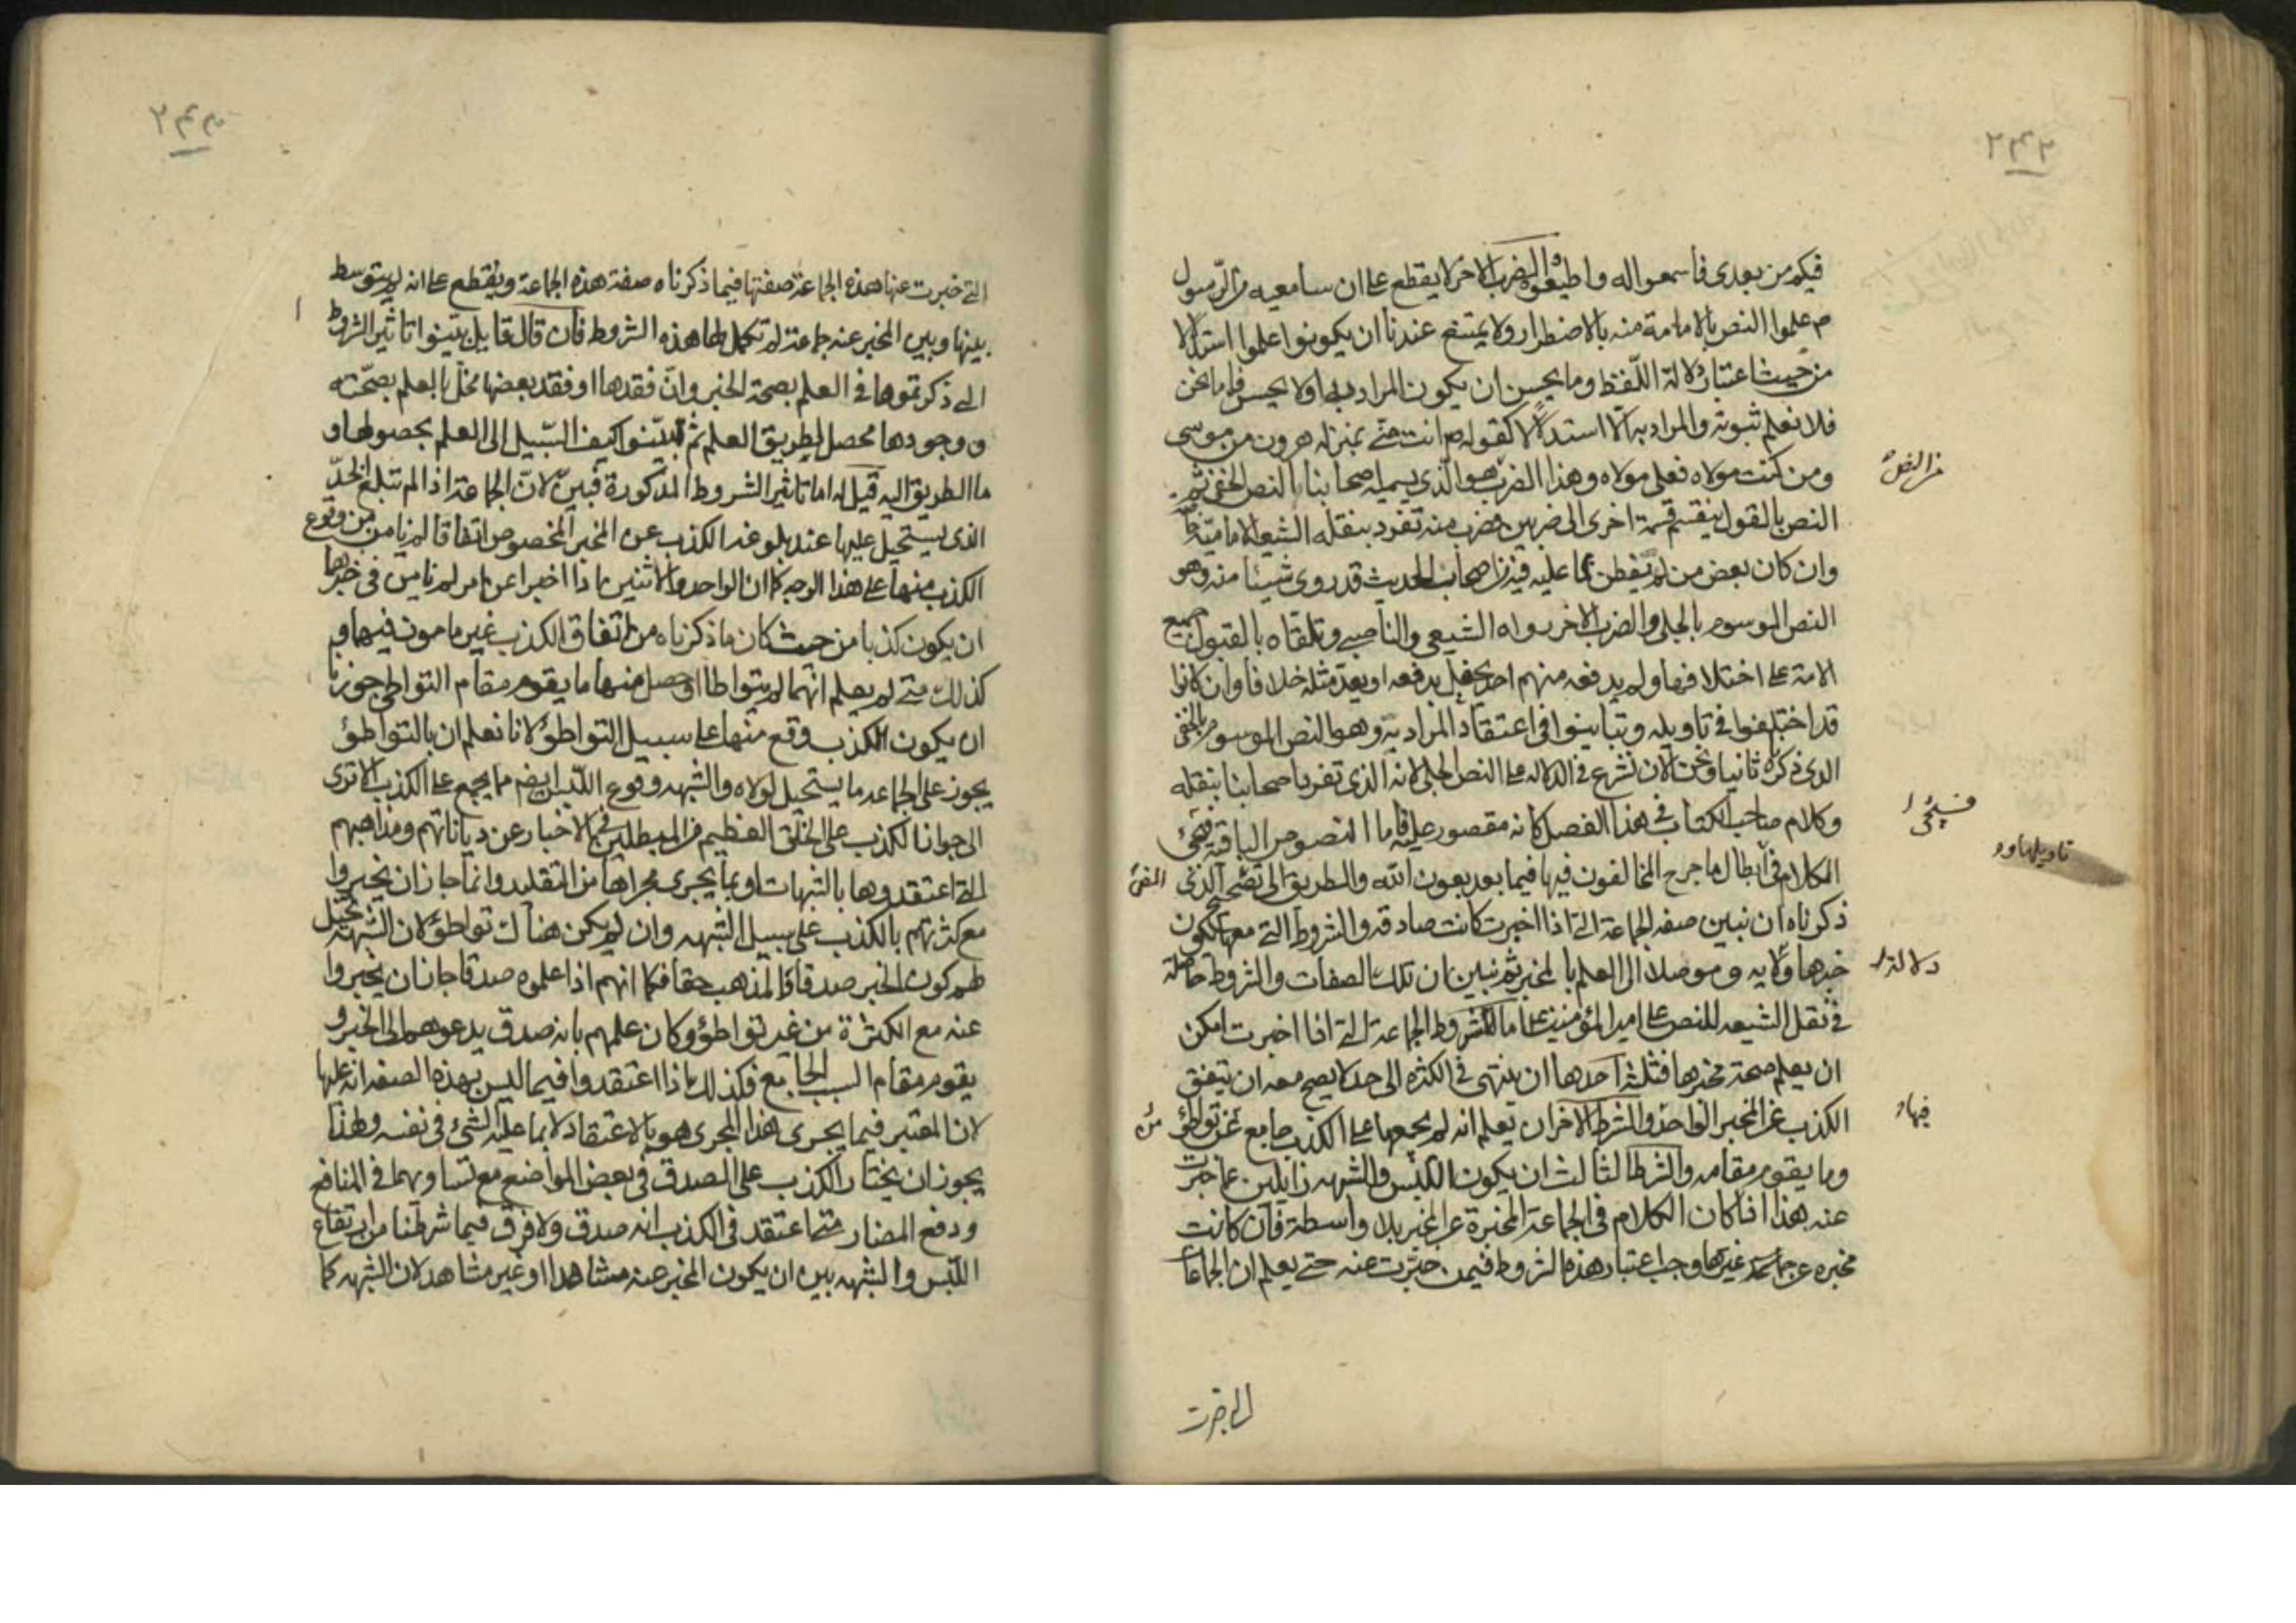 ٢٤٢
فيكم من بعدي فاسمعوا له واطيعوا والضرب الاخر لا يقطع على ان سامعيه من الرسول
م علموا النص بالامامة منه بالاضطرار ولا يمتنع عندنا ان يكونوا علموا استدلالا
من حيث اعتبار دلالة اللفظ وما يحسن ان يكون المراد به او لا يحسن فاما نحن
فلا نعلم ثبوته والمراد به الا استدلالا كقوله ص انت مني بمنزلة هرون من موسى
ومن كنت مولاه فعلي مولاه وهذا الضرب هو الذي يسميه اصحابنا النص الخفي ثم
النص بالقول ينقسم قسمة اخرى الى ضربين فضرب منه تفرد بنقله الشيعة الامامية خاصة
وان كان بعض من لم يفطن بما عليه فيه من اصحاب الحديث قد روى شيئا منه وهو
النص الموسوم بالجلي والضرب الاخر رواه الشيعي والناصبي وتلقاه بالقبول جميع
الامة على اختلافها ولم يدفعه منهم احد يحفل بدفعه او يعد مثله خلافا وان كانوا
قد اختلفوا في تاويله وتباينوا في اعتقاد المراد به وهو النص الموسوم بالخفي
الذي ذكرناه ثانيا ونحن الان نشرع في الدلالة على النص الجلي لانه الذي تفرد اصحابنا بنقله
وكلام صاحب الكتاب في هذا الفصل كانه مقصور عليه فاما النصوص الباقية فيجئ
الكلام في ابطال ما جرح المخالفون فيها فيما بعد بعون الله والطريق الى تصحيح الذي
ذكرناه ان نبين صفة الجماعة التي اذا اخبرت كانت صادقة والشروط التي معها يكون
خبرها دلالة وموصلا الى العلم بالمخبر ثم نبين ان تلك الصفات والشروط حاصلة
في نقل الشيعة للنص على امير المؤمنين ع اما الشروط الجماعة التي اذا اخبرت امكن
ان يعلم صحة مخبرها فثلثة احدها ان ينتهي في الكثرة الى حد لا يصح معه ان يتفق
الكذب عن المخبر الواحد والشرط الاخر ان يعلم انه لم يجمعها على الكذب جامع من تواطؤ
وما يقوم مقامه والشرط الثالث ان يكون اللبس والشبهة زايلين عما خبرت
عنه هذا اذا كان الكلام في الجماعة المخبرة عن المخبر بلا واسطة فان كانت
مخبرة عن جماعة غيرها وجب اعتبار هذه الشروط فيمن خبرت عنه حتى يعلم ان الجماعات
فسيجئ
تاويلها و
دلالة
فيها
التي خبرت
٢٤٣
التي خبرت عنها هذه الجماعة صفتها فيما ذكرناه صفة هذه الجماعة ويقطع على انه لم يتوسط
بينها وبين المخبر عنه جماعة لم تكمل لها هذه الشروط فان قال قايل بينوا تاثير الشروط
التي ذكرتموها في العلم بصحة الخبر وان فقدها او فقد بعضها مخل بالعلم بصحته
ووجودها محصل لطريق العلم ثم بينوا كيف السبيل الى العلم بحصولها و
ما الطريق اليه قيل له اما تاثير الشروط المذكورة فبين لان الجماعة اذا لم تبلغ الحد
الذي يستحيل عليها عند بلوغه الكذب عن المخبر المخصوص اتفاقا لم نامن من وقوع
الكذب منها على هذا الوجه كما ان الواحد والاثنين اذا اخبرا عن امر لم نامن في خبرهما
ان يكون كذبا من حيث كان ما ذكرناه من اتفاق الكذب غير مامون فيهما و
كذلك متى لم يعلم انهما لم يتواطا او حصل منها ما يقوم مقام التواطي جوزنا
ان يكون الكذب وقع منها على سبيل التواطؤ لانا نعلم ان بالتواطؤ
يجوز على الجماعة ما يستحيل لولاه والشبهة ووقوع اللبس ايضا مما يجمع على الكذب الا ترى
الى جواز الكذب على الخلق العظيم من المبطلين في الاخبار عن دياناتهم ومذاهبهم
التي اعتقدوها بالشبهات او بما يجري مجراها من التقليد وانما جاز ان يخبروا
مع كثرتهم بالكذب على سبيل الشبهة وان لم يكن هناك تواطؤ لان الشبهة تخيل
لهم كون الخبر صدقا والمذهب حقا فكما انهم اذا علموه صدقا جاز ان يخبروا
عنه مع الكثرة من غير تواطؤ وكان علمهم بانه صدق يدعوهم الى الخبر و
يقوم مقام السبب الجامع فكذلك اذا اعتقدوا فيما ليس بهذه الصفة انه عليها
لان المعتبر فيما يجري هذا المجرى هو بالاعتقاد لا بما عليه الشئ في نفسه ولهذا
يجوز ان يختار الكذب على الصدق في بعض المواضع مع تساويهما في المنافع
ودفع المضار متى اعتقد في الكذب انه صدق ولا فرق فيما شرطنا من ارتفاع
اللبس والشبهة بين ان يكون المخبر عنه مشاهدا او غير مشاهد لان الشبهة كما